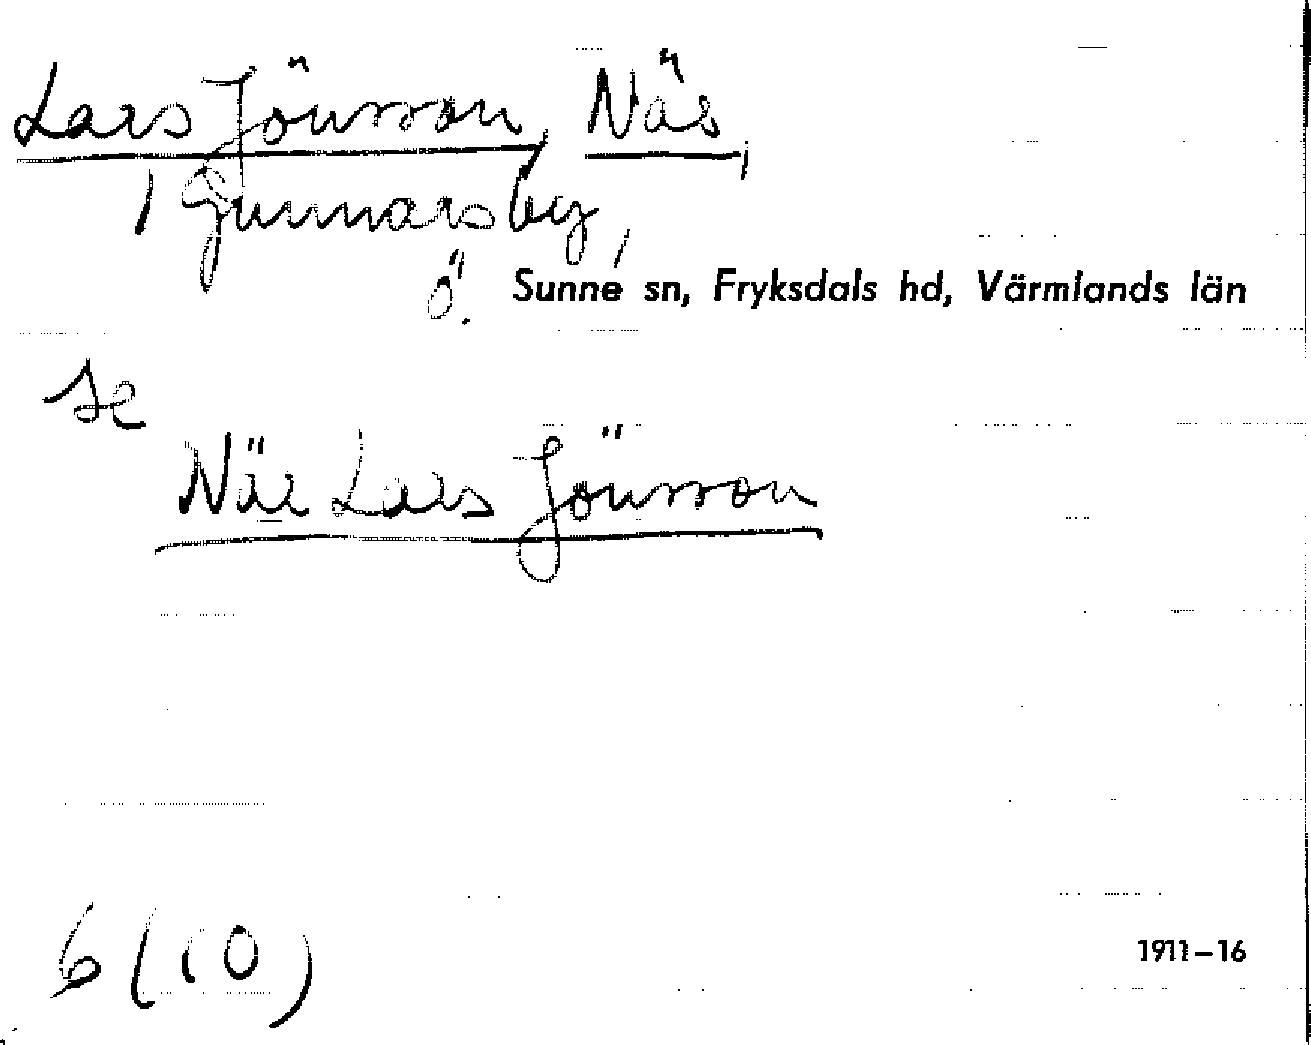 Lars Jönsson, Näs,
i Gunnarsby,
Ö. Sunne sn, Fryksdals hd, Värmlands län
se
När Lars Jönsson
6 (10)
1911–16